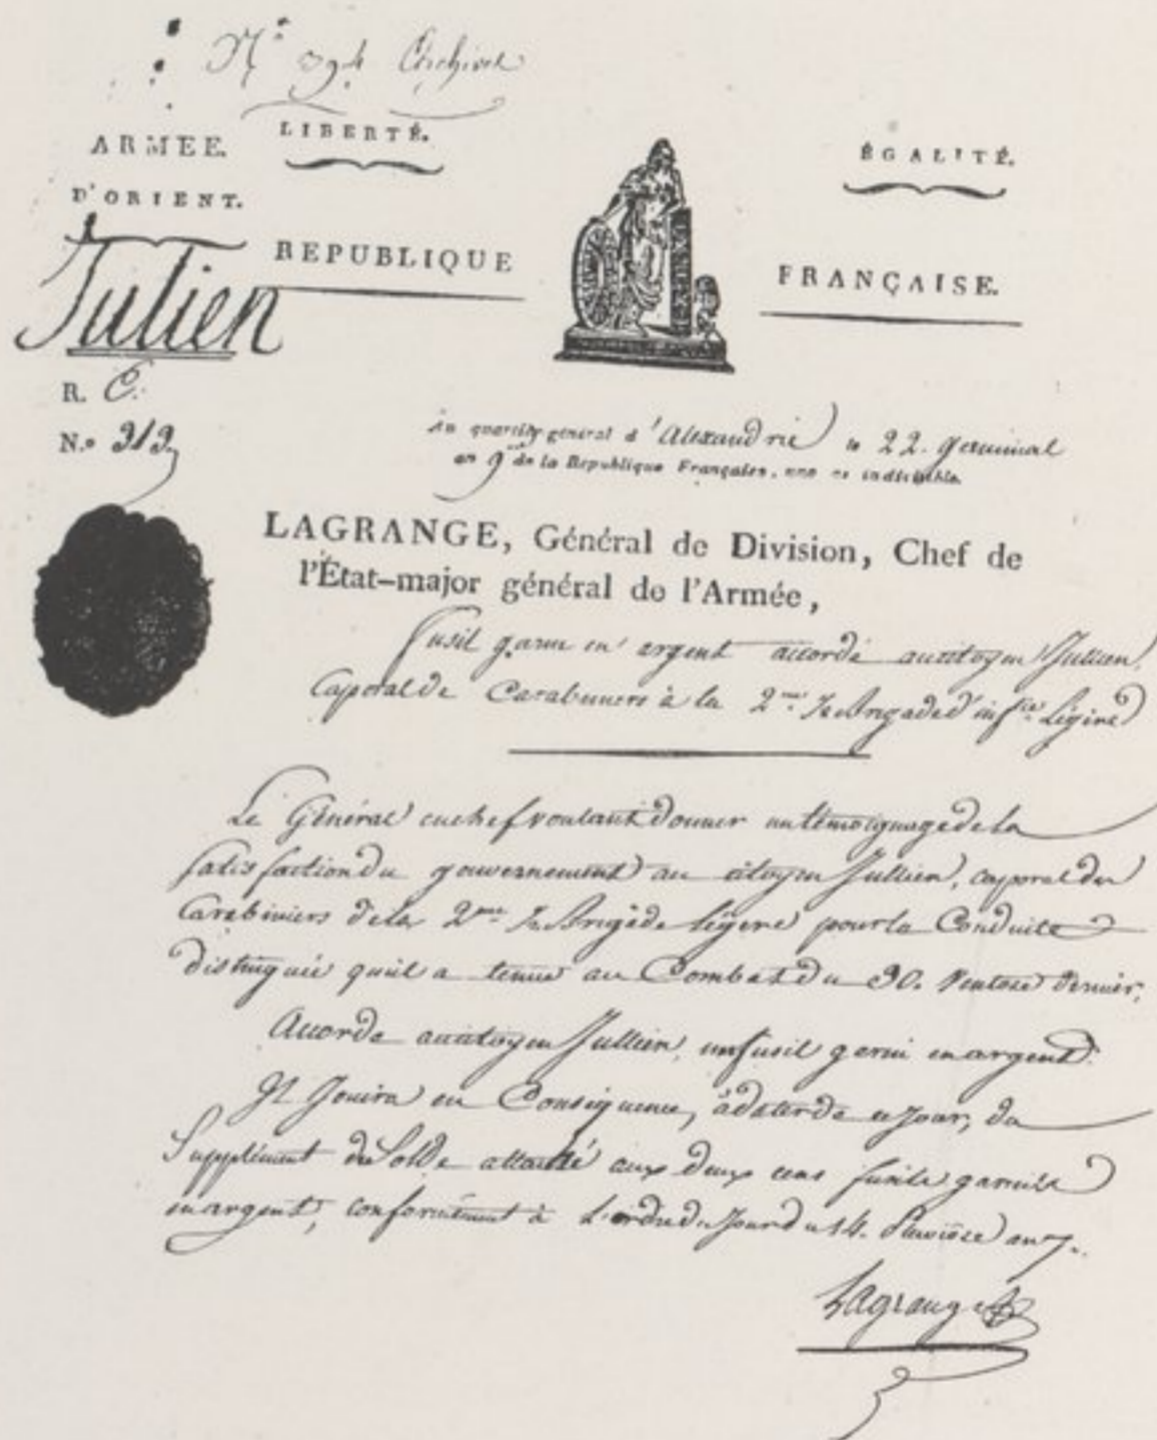 N° 394 Archives
ARMEE
D'ORIENT.
LIBERTÉ.
ÉGALITÉ.
REPUBLIQUE
FRANÇAISE.
Julien
R. C.
N.° 313
Au quartier-général d'Alexandrie le 22. germinal
an 9 de la République Française, une et indivisible.
LAGRANGE, Général de Division, Chef de
l'État-major général de l'Armée,
Fusil garni en argent accordé au citoyen Jullien,
Caporal de Carabiniers à la 2me ½ Brigade d'infrie Légère
Le Général en chef voulant donner un témoignage de la
satisfaction du gouvernement au citoyen Jullien, caporal des
Carabiniers de la 2me ½ Brigade légère pour la Conduite
distinguée qu'il a tenue au Combat du 30. Ventose dernier,
Accorde au citoyen Jullien, un fusil garni en argent.
Il Jouira en Conséquence, à dater de ce jour, du
Supplément de Solde attaché aux deux cens fusils garnis
en argent, conformément à L'ordre du Jour du 14. Pluviôse an 7.
Lagrange